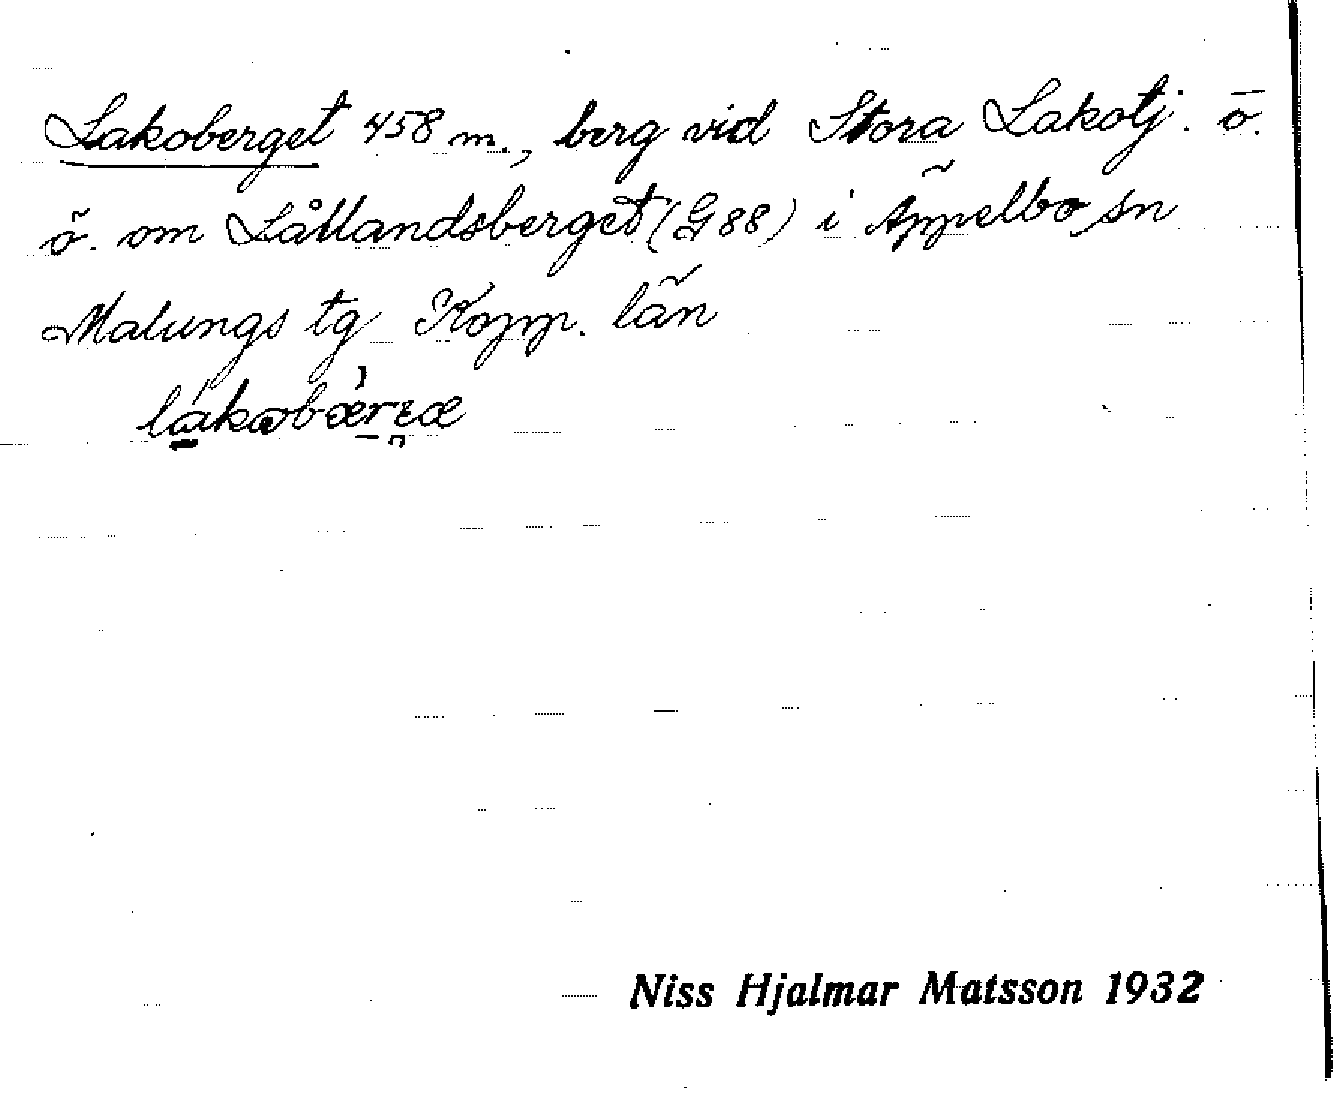 Lakoberget 458 m., berg vid Stora Lakotj. ö.
ö. om Lållandsberget (G 88) i Äppelbo sn
Malungs tg Kopp. län
lákobæ̀rɛæ
Niss Hjalmar Matsson 1932